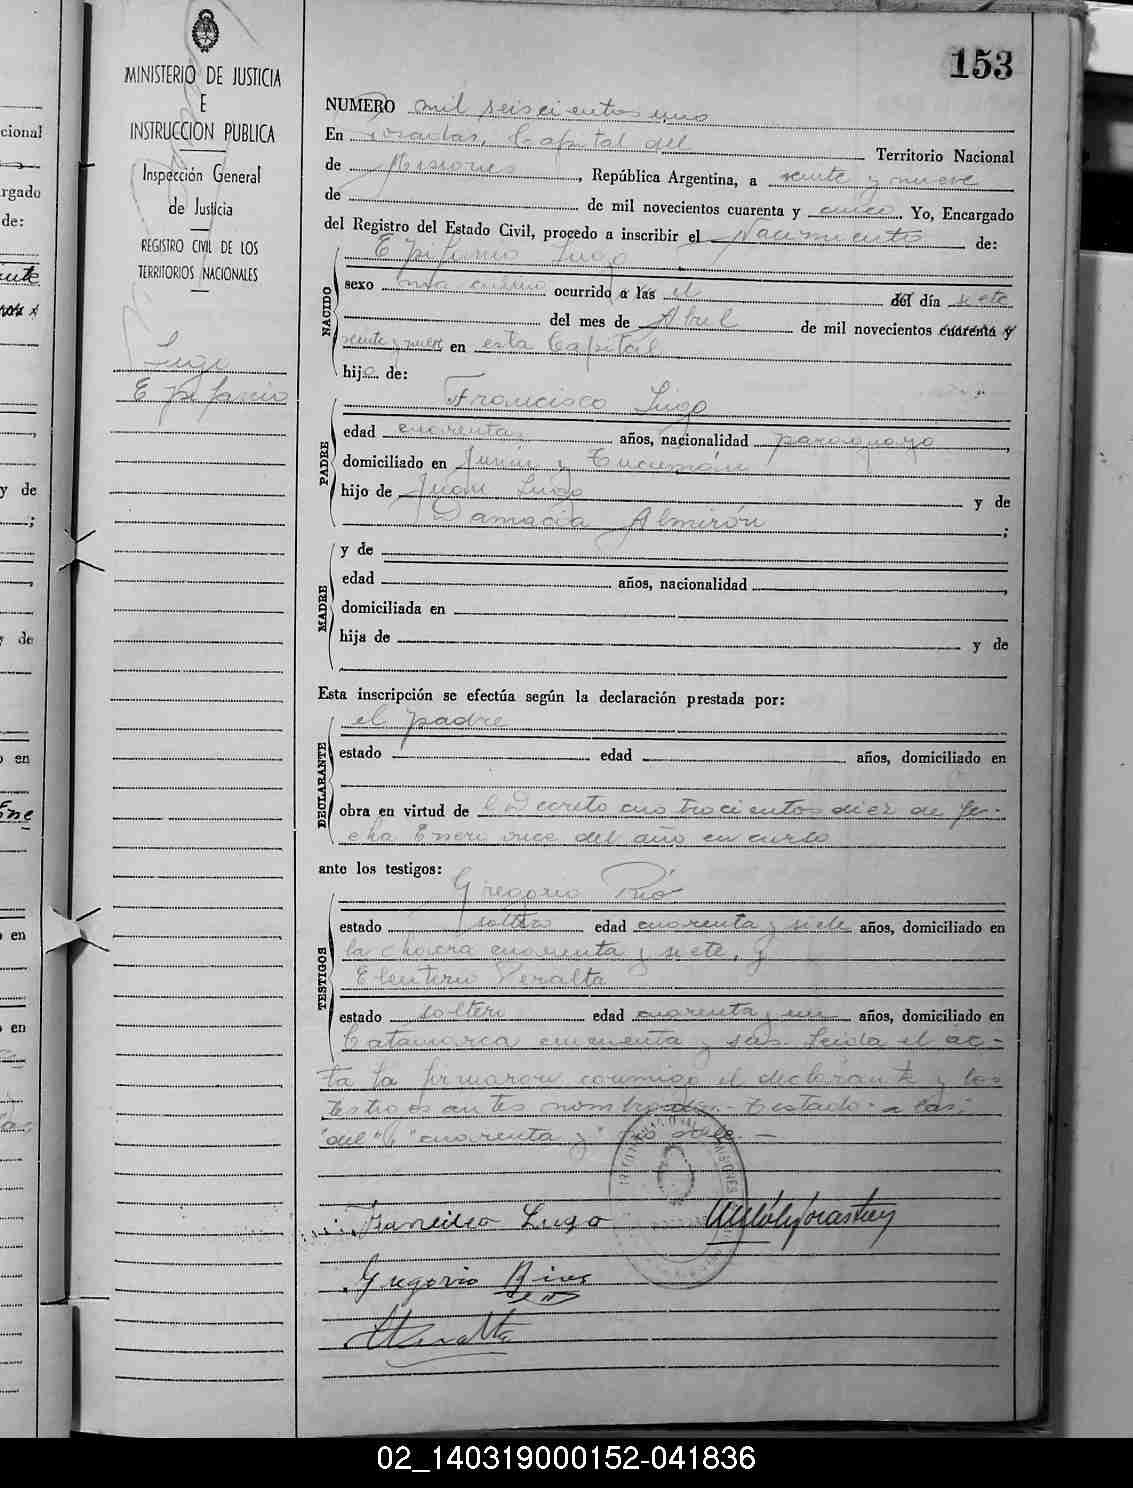 153
MINISTERIO DE JUSTICIA
E
INSTRUCCION PUBLICA
Inspección General
de Justicia
REGISTRO CIVIL DE LOS
TERRITORIOS NACIONALES
Lugo
Epifanio
NUMERO mil seiscientos uno
En Posadas, Capital del Territorio Nacional
de Misiones, República Argentina, a veinte y nueve
de de mil novecientos cuarenta y cinco. Yo, Encargado
del Registro del Estado Civil, procedo a inscribir el Nacimiento de:
NACIDO
Epifanio Lugo
sexo masculino ocurrido a las el del día siete
del mes de Abril de mil novecientos cuarenta y
veinte y nueve en esta Capital
hijo de:
PADRE
Francisco Lugo
edad cuarenta años, nacionalidad paraguayo
domiciliado en Junín y Tucumán
hijo de Juan Lugo y de
Damacia Almirón ;
MADRE
y de
edad años, nacionalidad ,
domiciliada en
hija de y de
Esta inscripción se efectúa según la declaración prestada por:
DECLARANTE
el padre
estado edad años, domiciliado en
obra en virtud de l Decreto cuatrocientos diez de fe-
cha Enero once del año en curso
ante los testigos:
TESTIGOS
Gregorio Río
estado soltero edad cuarenta y siete años, domiciliado en
la chacra cuarenta y siete, y
Eleuterio Peralta
estado soltero edad cuarenta y un años, domiciliado en
Catamarca cincuenta y seis. Leída el ac-
ta la firmaron conmigo el declarante y los
testigos antes nombrados.- Testado: a las:
"del", "cuarenta y" no vale.—
MISIONES
Francisco Lugo
Gregorio Rios
02_140319000152-041836